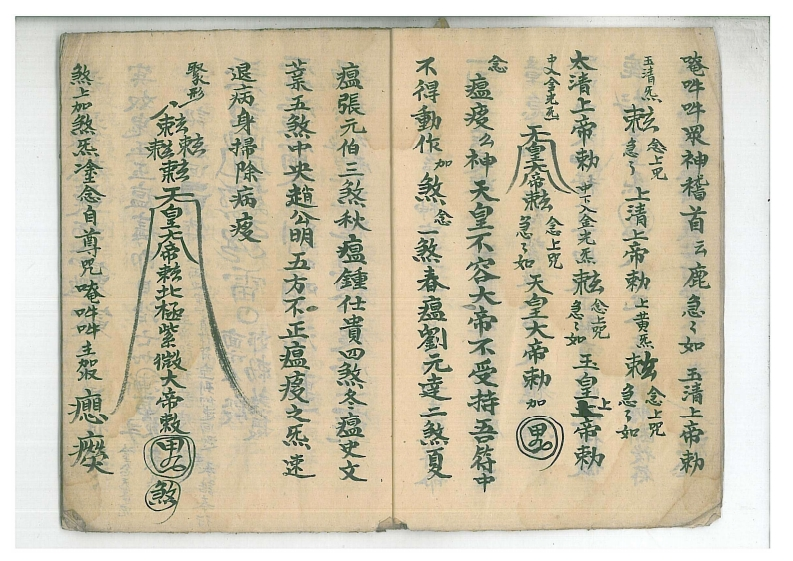 唵吽吽眾神稽首云鹿急々如玉清上帝勅
玉清炁 念上咒 急々 上清上帝勅 上黄炁 念上咒 急々如
太清上帝勅 中下入金光炁 念上咒 急々如 玉皇上帝勅
中入金光炁 天皇大帝 念上咒 急々如 天皇大帝勅 加
念 瘟疫么神天皇不容大帝不受持吾符中
不得動作 加 煞 念 一煞春瘟劉元達二煞夏
瘟張元伯三煞秋瘟鍾仕貴四煞冬瘟史文
葉五煞中央趙公明五方不正瘟疫之炁速
退病身掃除病疫
聚形
天皇大帝 北極紫微大帝敕 煞
煞上加煞炁塗念自尊咒唵吽吽